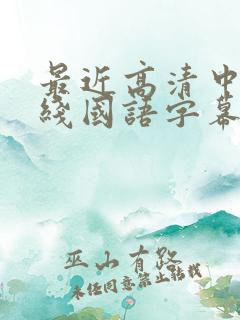 最近高清中
綫國語字幕
巫山有路
未经同意禁止转载